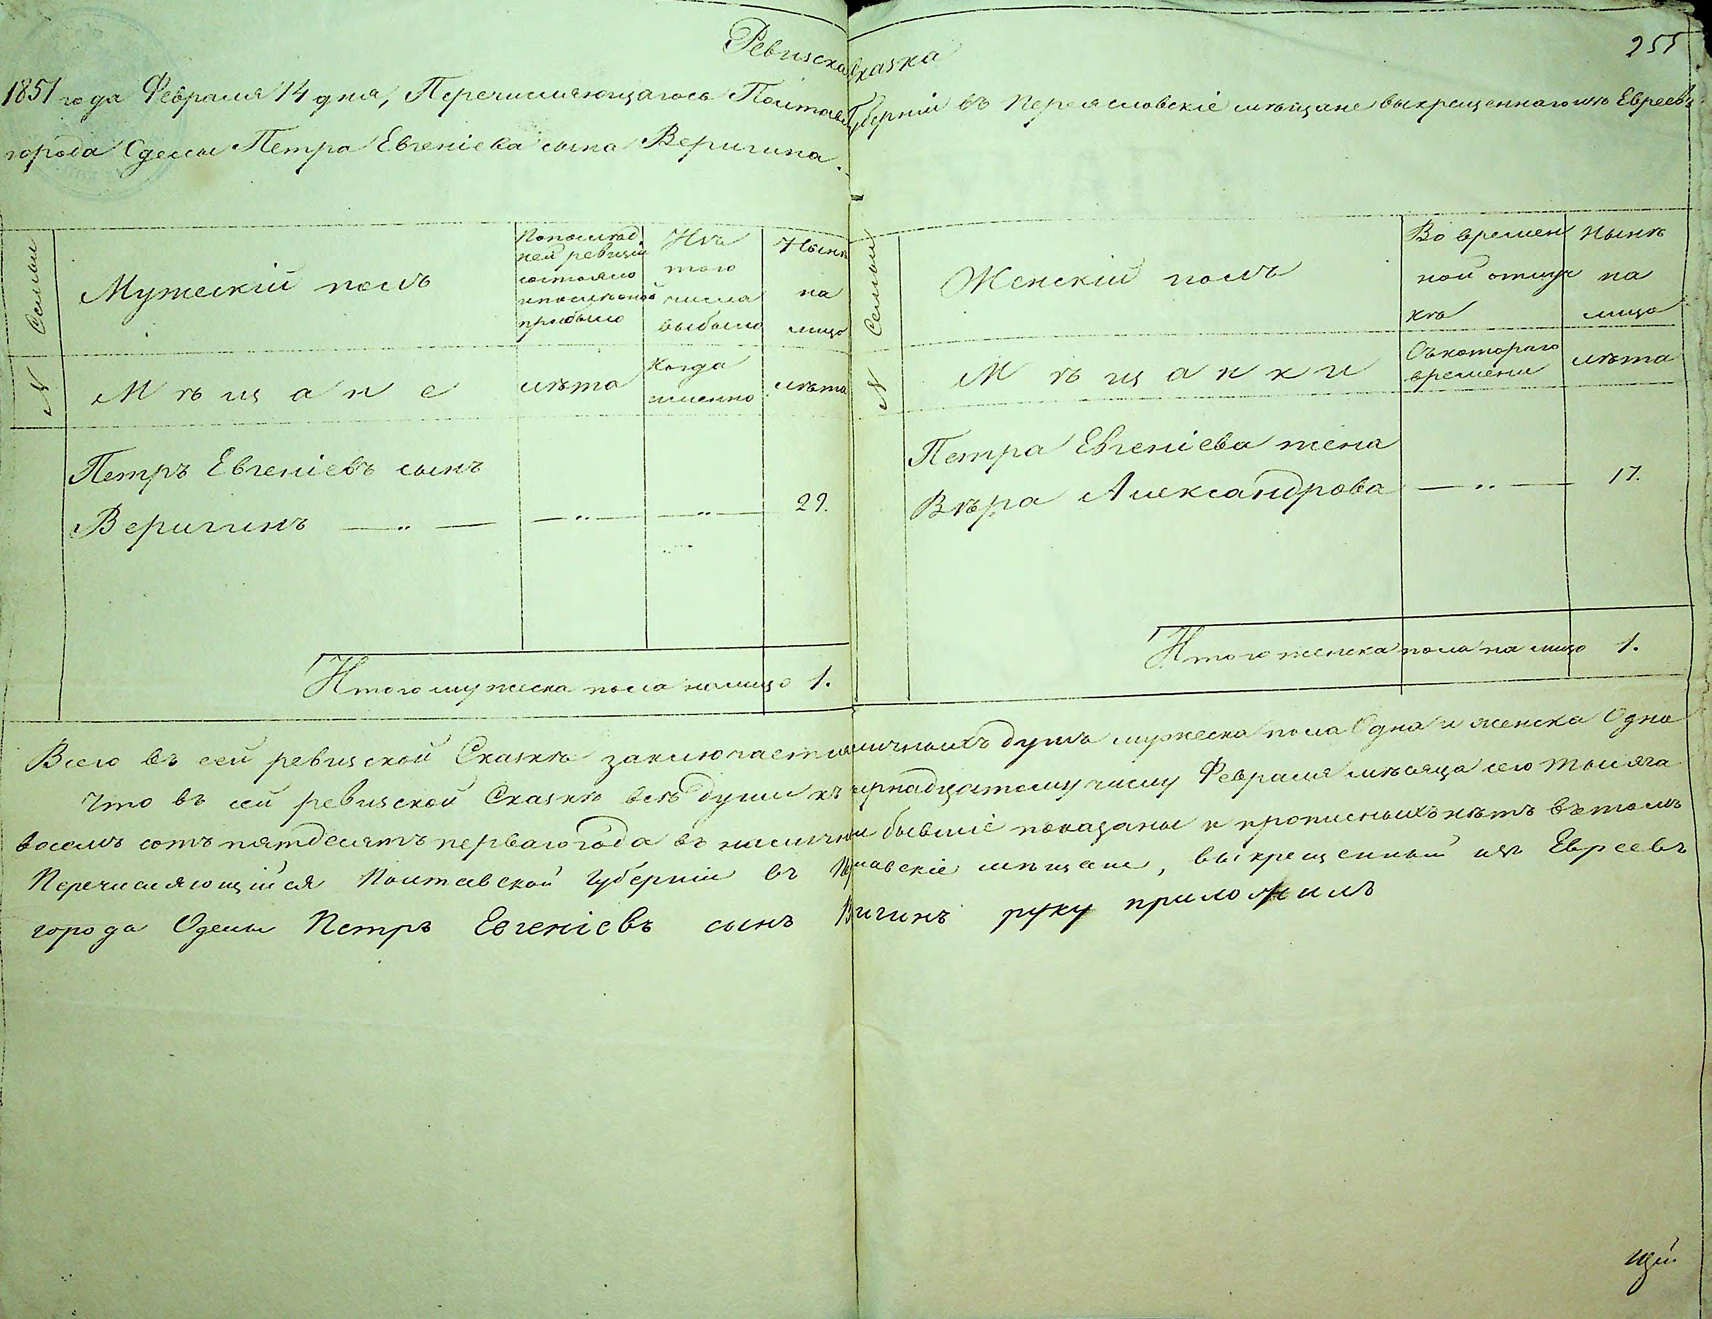 255
Ревиская Сказка
1851 года Февраля 14 дня, Перечисляющагося Полтавс Губерніи въ Переясловскіе мѣщане выкрещеннаго изъ Евреевъ
города Одессы Петра Евгеніева сына Веригина.
Семьи
Мужескій полъ
По послѣд
ней ревизіи
состояло
и послѣ оной
прибыло
Изъ
того
числа
выбыло
Нынѣ
на
лицо
Семьи
Женскій полъ
Во времен
ной отлуч
кѣ
Нынѣ
на
лицо
№
Мѣщане
лѣта
Когда
именно
лѣта
№
Мѣщанки
Съ котораго
времени
лѣта
Петръ Евгеніевъ сынъ
Веригинъ — „ — — „ — — „ — 29.
Петра Евгеніева жена
Вѣра Александрова — „ — 17.
Итого мужеска пола на лицо 1.
Итого женска пола на лицо 1.
Всего въ сей ревизской Сказкѣ заключается личныхъ душъ мужеска пола Одна и женска Одна
Что въ сей ревизской Сказкѣ всѣ души къ ырнадцатому числу Февраля мѣсяца сего тысяча
восемь сотъ пятдесятъ перваго года въ наличи бывшіе показаны и прописныхъ нѣтъ въ томъ
Перечисляющійся Полтавской Губерніи въ славскіе мѣщане, выкрещенный изъ Евреевъ
города Одесы Петръ Евгеніевъ сынъ Вигинъ руку приложилъ
щій